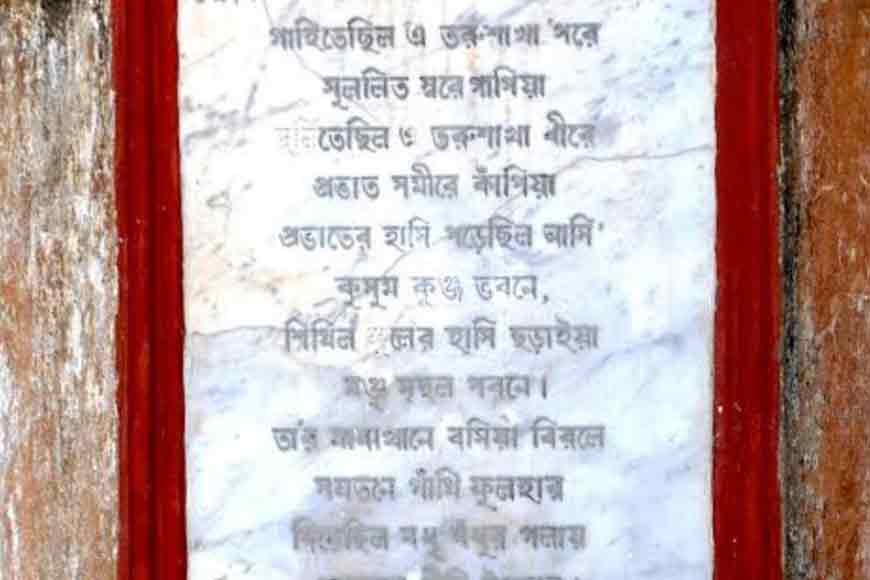 গাহিতেছিল এ তরুশাখা 'পরে
সুললিত স্বরে পাপিয়া
তেছিল ও তরুশাখা ধীরে
প্রভাত সমীরে কাঁপিয়া
প্রভাতের হাসি পড়েছিল আসি'
কুসুম কুঞ্জ ভবনে,
শিথিল ফুলের হাসি ছড়াইয়া
মঞ্জু মৃদুল পবনে।
তা'র মাঝখানে বসিয়া বিরলে
সযতনে গাঁথি ফুলহার
দিতেছিল বধূ বঁধুর গলায়